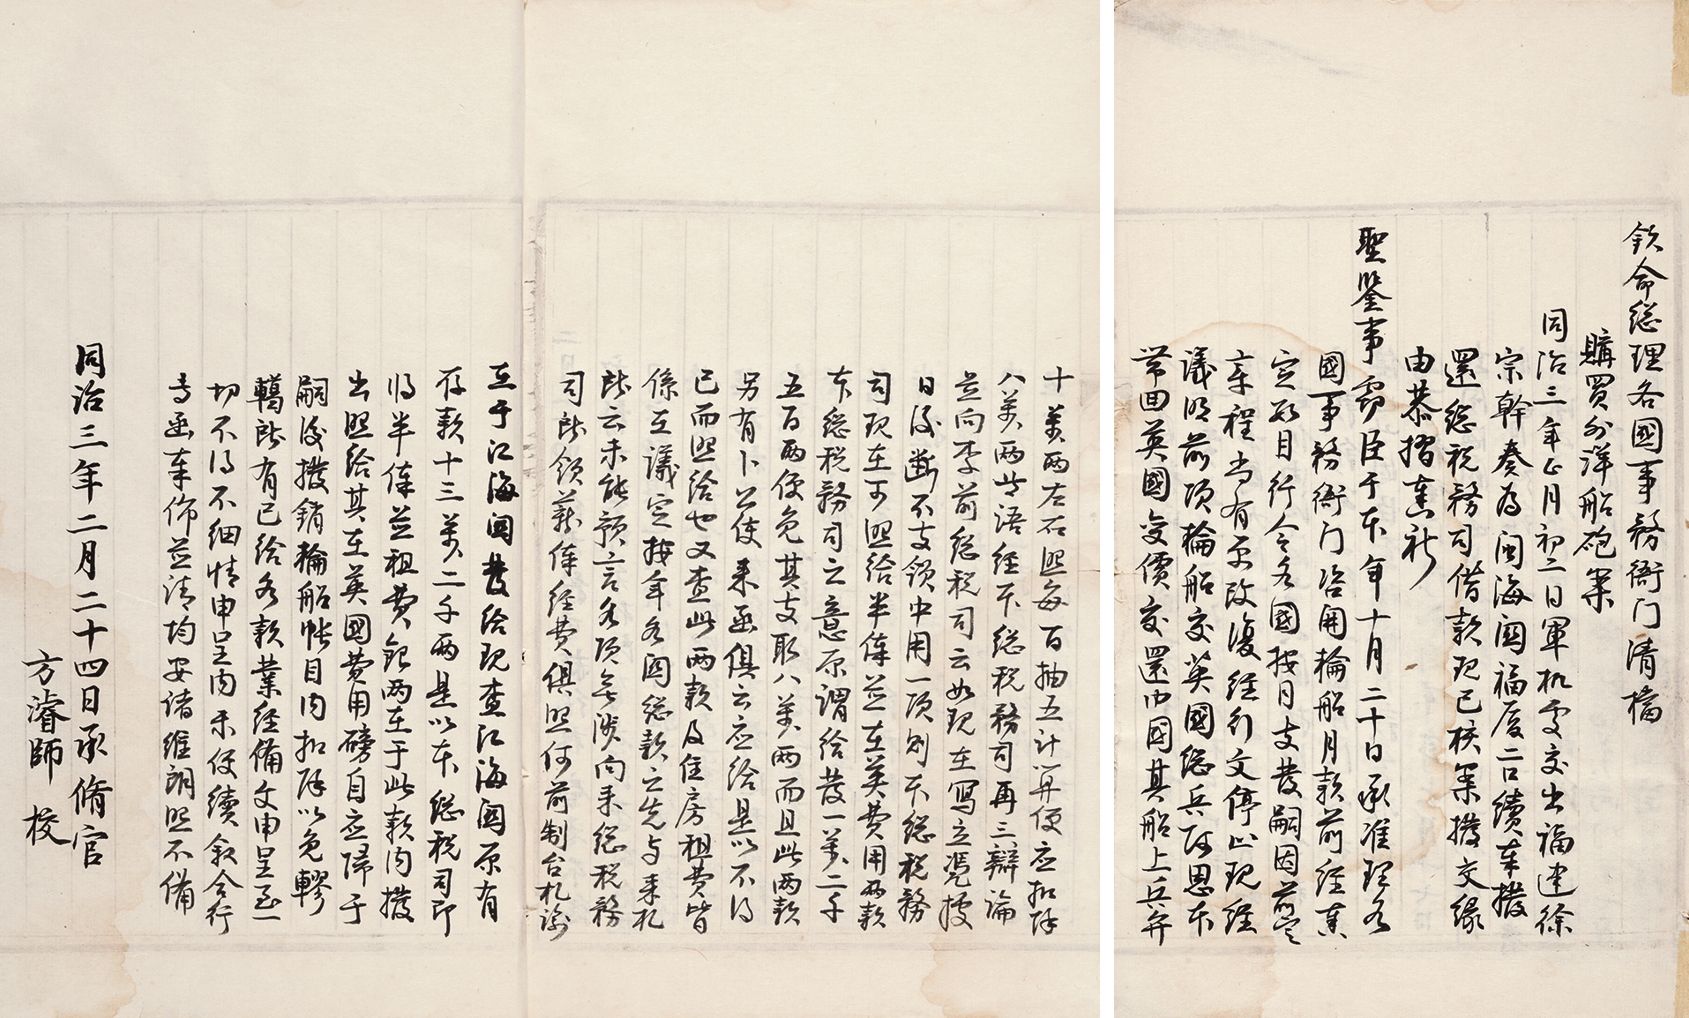 欽命總理各國事務衙门清檔
購買外洋船砲案
同治三年正月初二日軍机处交出福建徐
宗幹奏為閩海関福厦二口續奉撥
還總税務司借款現已核案撥交緣
由恭摺奏祈
聖鑒事竊臣于本年十月二十日承准理各
國事務衙门咨開輪船月款前經奏
定數目行令各國按月支發嗣因前定
章程尚有更改復經行文停止現經
議明前項輪船交英國總兵阿思本
带回英國变價交還中國其船上兵弁
十萬两左右照每百抽五计算便应扣除
八萬两此语经本總税務司再三辯論
并向李前總税司云如現在写立憑據
日後断不支领中用一項则本總税務
司現在可照给半俸並在英費用两款
本總税務司之意原谓给發一萬二千
五百两便免其支取八萬两而且此两款
另有卜公使来函俱云应给是以不得
已而照给也又查此两款及住房租費皆
係互議定按年各関總款之先与来札
所云未能预言各项無涉向来總税務
司所领薪俸经費俱照何前制台札谕
至于江海関發给現查江海関原有
存款十三萬二千两是以本總税司即
将半俸並租費銀两在于此款内撥
出照给其在英國費用磅自应歸于
嗣後撥銷輪船帐目内扣除以免轇
轕所有已给各款業经備文申呈至一
切不得不细情申呈内未便續叙今行
专函奉佈並请均安诸维朗照不備
同治三年二月二十四日承脩官
方濬師 校